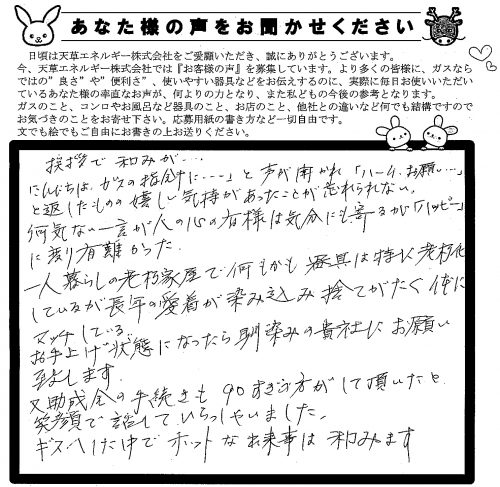 あなた様の声をお聞かせください
日頃は天草エネルギー株式会社をご愛顧いただき、誠にありがとうございます。
今、天草エネルギー株式会社では『お客様の声』を募集しています。より多くの皆様に、ガスなら
ではの"良さ"や"便利さ"、使いやすい器具などをお伝えするのに、実際に毎日お使いいただい
ているあなた様の率直なお声が、何よりの力となり、また私どもの今後の参考となります。
ガスのこと、コンロやお風呂など器具のこと、お店のこと、他社との違いなど何でも結構ですので
お気づきのことをお寄せ下さい。応募用紙の書き方など一切自由です。
文でも絵でもご自由にお書きの上お送りください。
挨拶で和みが…
こんにちは、ガスの指針に…」と声が聞かれ「ハーイ、お願い…」
と返したものの嬉しい気持があったことが忘れられない。
何気ない一言が人の心の有様は気分にも寄るが「ハッピー」
に成り有難かった。
一人暮らしの老朽家屋で何もかも器具は特に老朽化
しているが長年の愛着が染み込み捨てがたく体に
マッチしている。
お手上げ状態になったら馴染みの貴社にお願い
致します。
又助成金の手続きも90すぎの方がして頂いたと
笑顔で話していらっしゃいました。
ギスへした中でホットなお来事は和みます